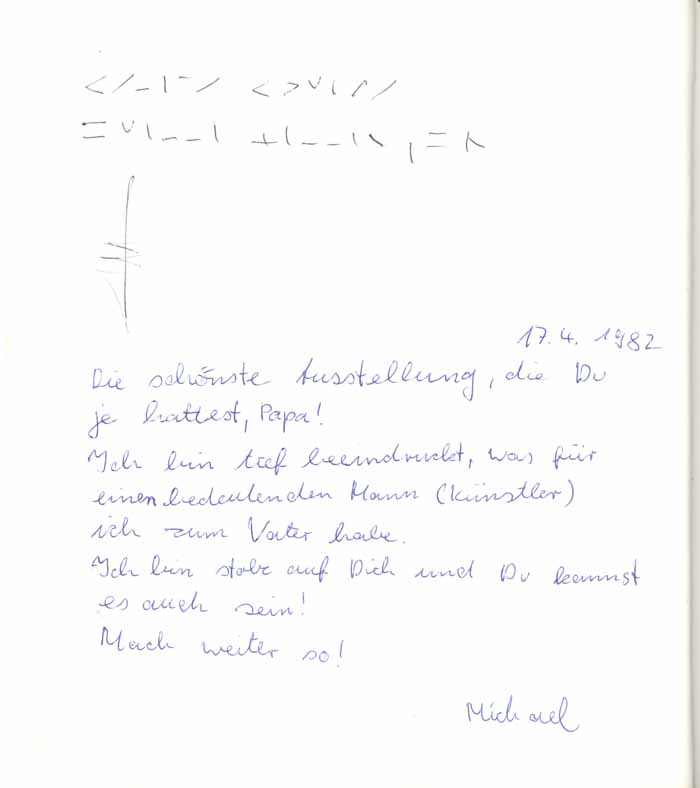 17.4. 1982
Die schönste Ausstellung, die Du
je hattest, Papa!
Ich bin tief beeindruckt, was für
einen bedeutenden Mann (Künstler)
ich zum Vater habe.
Ich bin stolz auf Dich und Du kannst
es auch sein!
Mach weiter so!
Michael